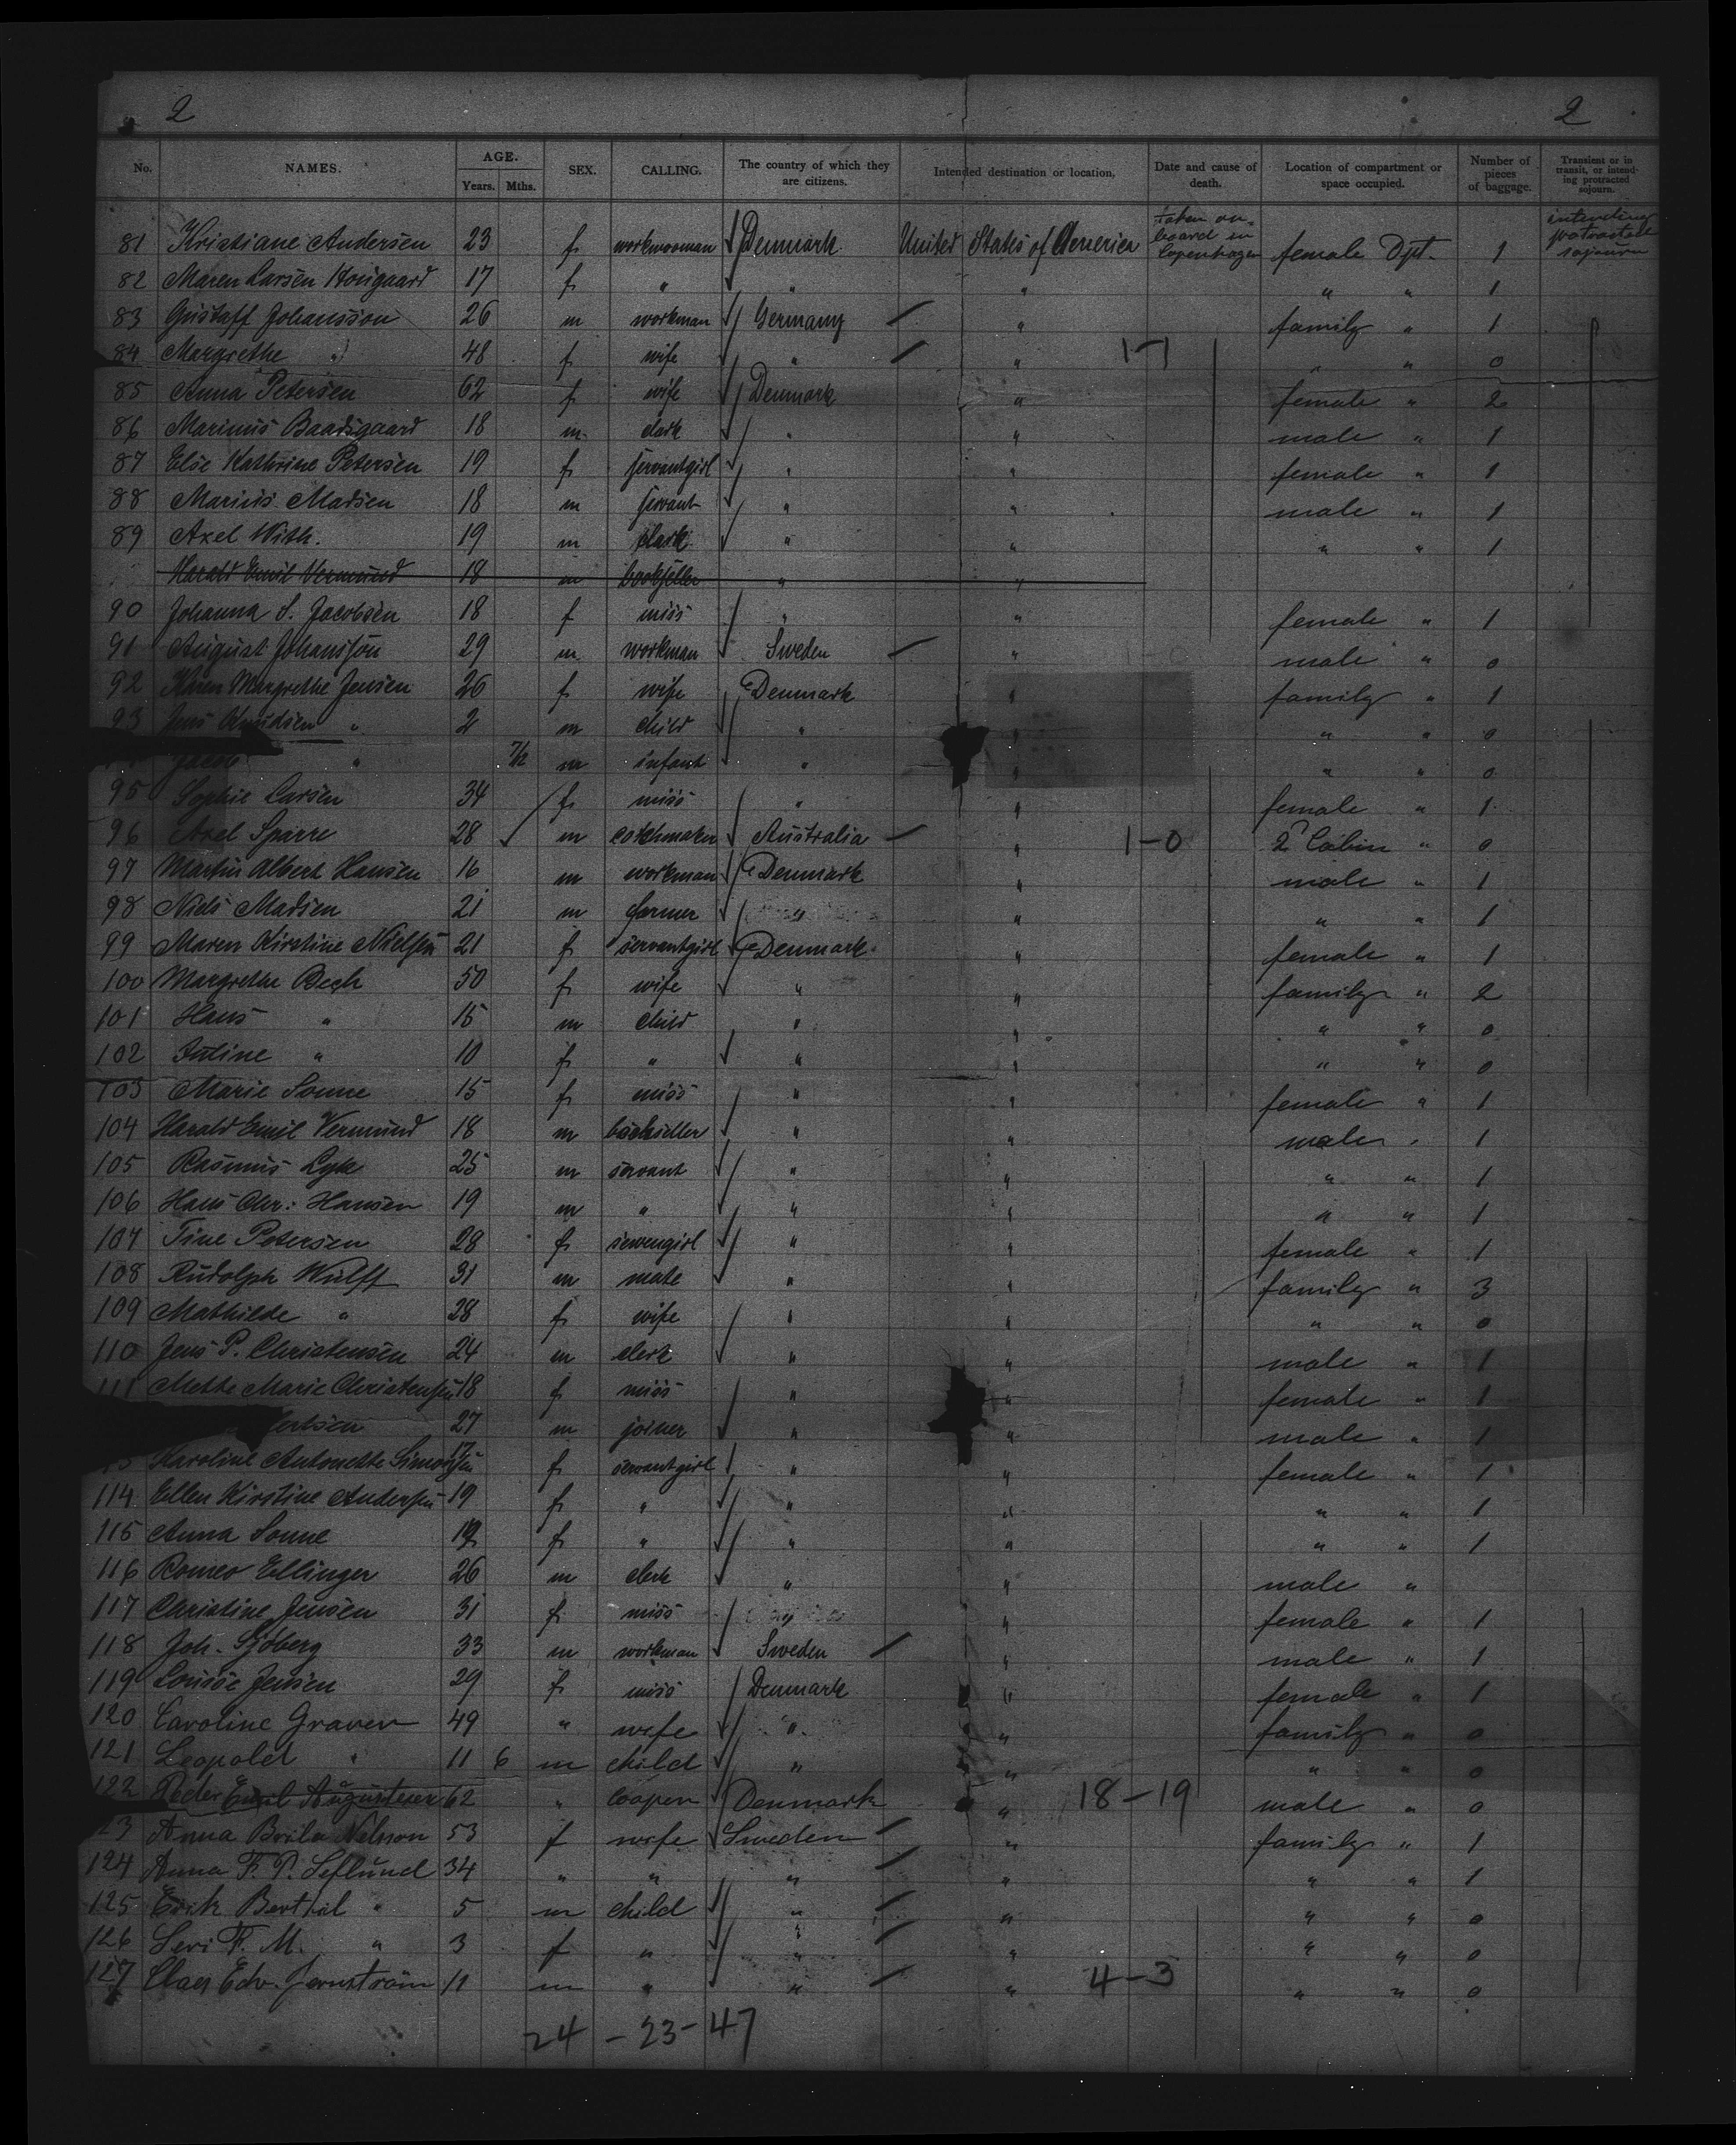 2 2
No. NAMES. AGE. Years. Mths. SEX. CALLING. The country of which they are citizens. Intended destination or location, Date and cause of death. Location of compartment or space occupied. Number of pieces of baggage. Transient or in transit, or intending protracted sojourn.
81 Kristiane Andersen 23 f workwooman Denmark United States of America taken on-board in Copenhagen female Dpt. 1 intending protracted sojourn
82 Maren Larsen Hougaard 17 f " " " " " 1
83 Gustaff Johansson 26 m workman Germany " family " 1
84 Margrethe " 48 f wife " " 1-1 " " 0
85 Anna Petersen 62 f wife Denmark " female " 2
86 Marinus Baadsgaard 18 m clark " " male " 1
87 Else Kathrine Petersen 19 f servantgirl " " female " 1
88 Marius Madsen 18 m servant " " male " 1
89 Axel With. 19 m clark " " " " 1
Harald Emil Vermund 18 m bookseller " "
90 Johanna S. Jacobsen 18 f miss " " female " 1
91 August Johansson 29 m workman Sweden " male " 0
92 Karen Margrethe Jensen 26 f wife Denmark " family " 1
93 Jens Knudsen " 2 m child " " " " 0
" 7/12 m infant " " " " 0
95 Sophie Larsen 34 f miss " " female " 1
96 Axel Sparre 28 m Australia " 1-0 2 Cabin " 0
97 Martin Albert Hansen 16 m workman Denmark " male " 1
98 Niels Madsen 21 m farmer " " " " 1
99 Maren Kirstine Nielsen 21 f servantgirl Denmark " female " 1
100 Margrethe Bech 50 f wife " " family " 2
101 Hans " 15 m child " " " " 0
102 Juline " 10 f " " " " " 0
103 Marie Sonne 15 f miss " " female " 1
104 Harald Emil Vermund 18 m bookseller " " male " 1
105 Rasmus Lyk 25 m servant " " " " 1
106 Hans Chr: Hansen 19 m " " " " " 1
107 Tine Petersen 28 f sewengirl " " female " 1
108 Rudolph Wulff 31 m mate " " family " 3
109 Mathilde " 28 f wife " " " " 0
110 Jens P. Christensen 24 m clerk " " male " 1
111 Mette Marie Christensen 18 f miss " " female " 1
27 m joiner " " male " 1
Karoline Antonette Simonsen 17 f servantgirl " " female " 1
114 Ellen Kirstine Andersen 19 f " " " " " 1
115 Anna Sonne f " " " " " 1
116 Romeo Ellinger 26 m clerk " " male "
117 Christine Jensen 31 f miss " " female " 1
118 Joh. Sjöberg 33 m workman Sweden " male " 1
119 Louise Jensen 29 f miss Denmark " female " 1
120 Caroline Graven 49 " wife " " family " 0
121 Leopold " 11 6 m child " " " " 0
122 Peder Emil Augustesen 62 " cooper Denmark " 18-19 male " 0
123 Anna Brita Nelson 53 f wife Sweden " family " 1
124 Anna F. P. Leflund 34 " " " " " " 1
125 Erik Berthil " 5 m child " " " " 0
126 Seri F. M. " 3 f " " " " " 0
127 Claes Edv. Jernström 11 m " " " 4-3 " " 0
24 - 23 - 47